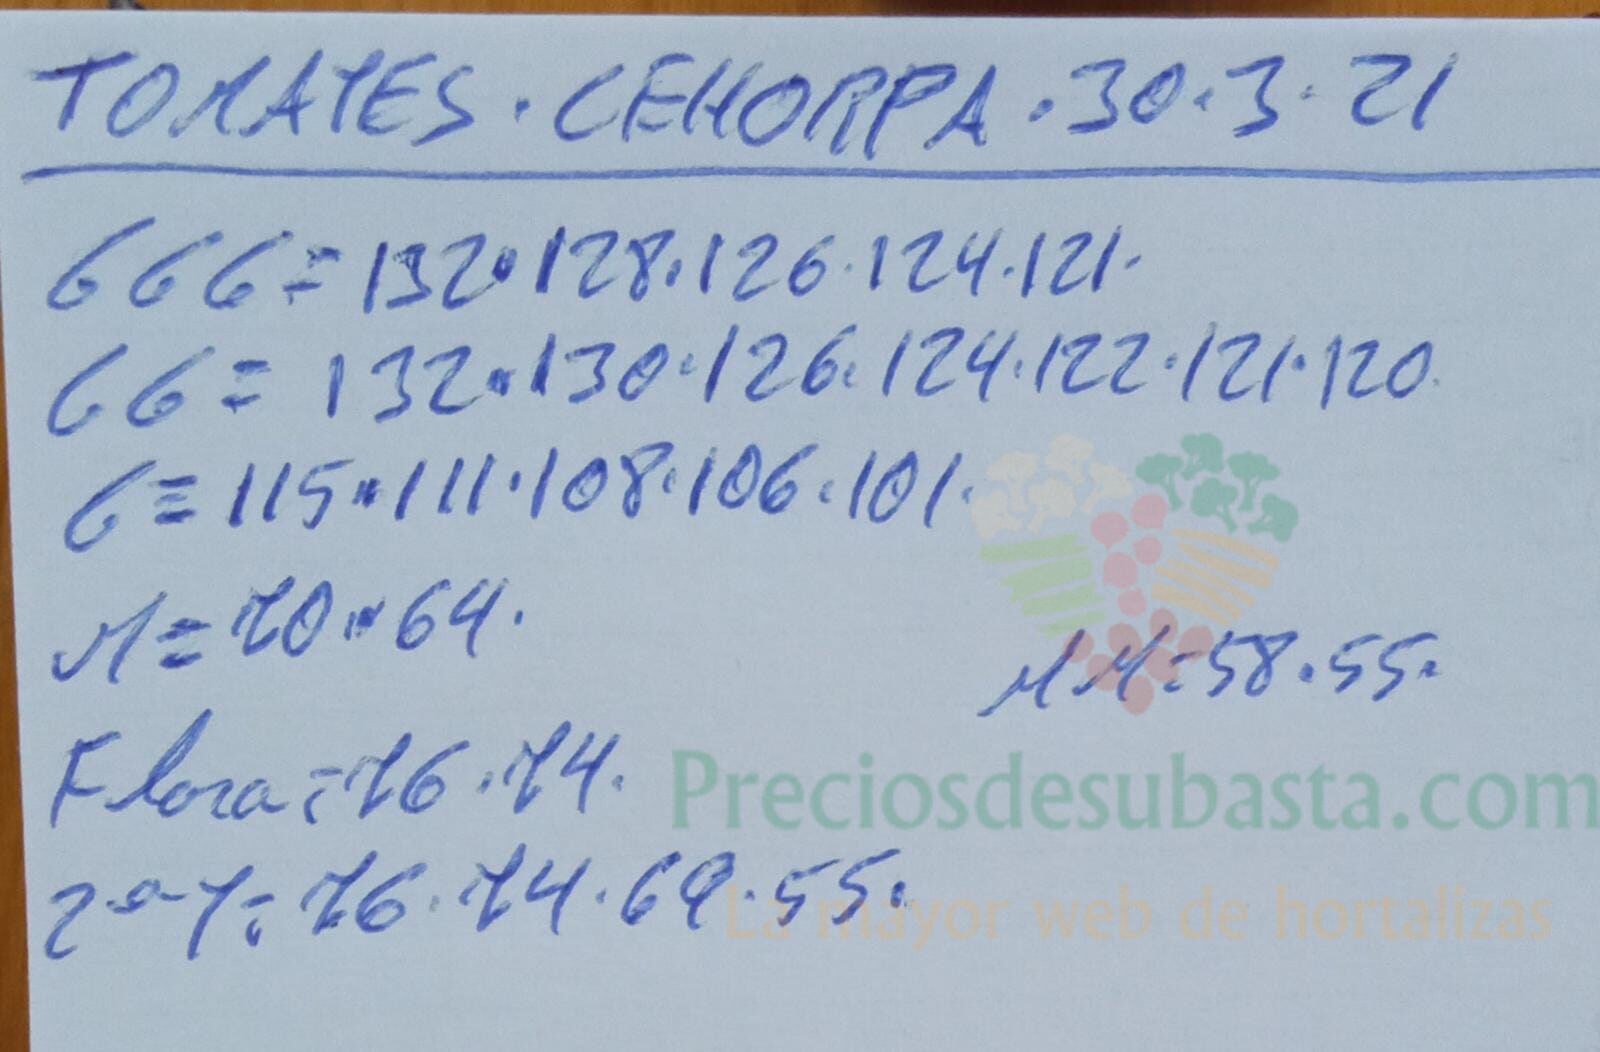 TOMATES · CEHORPA · 30 · 3 · 21
GGG = 132 · 128 · 126 · 124 · 121 ·
GG = 132 · 130 · 126 · 124 · 122 · 121 · 120 ·
G = 115 · 111 · 108 · 106 · 101 ·
M = 70 · 64 ·
MM = 58 · 55 ·
Flora = 76 · 74 ·
Preciosdesubasta.com
2ª = 76 · 74 · 69 · 55 ·
La mayor web de hortalizas